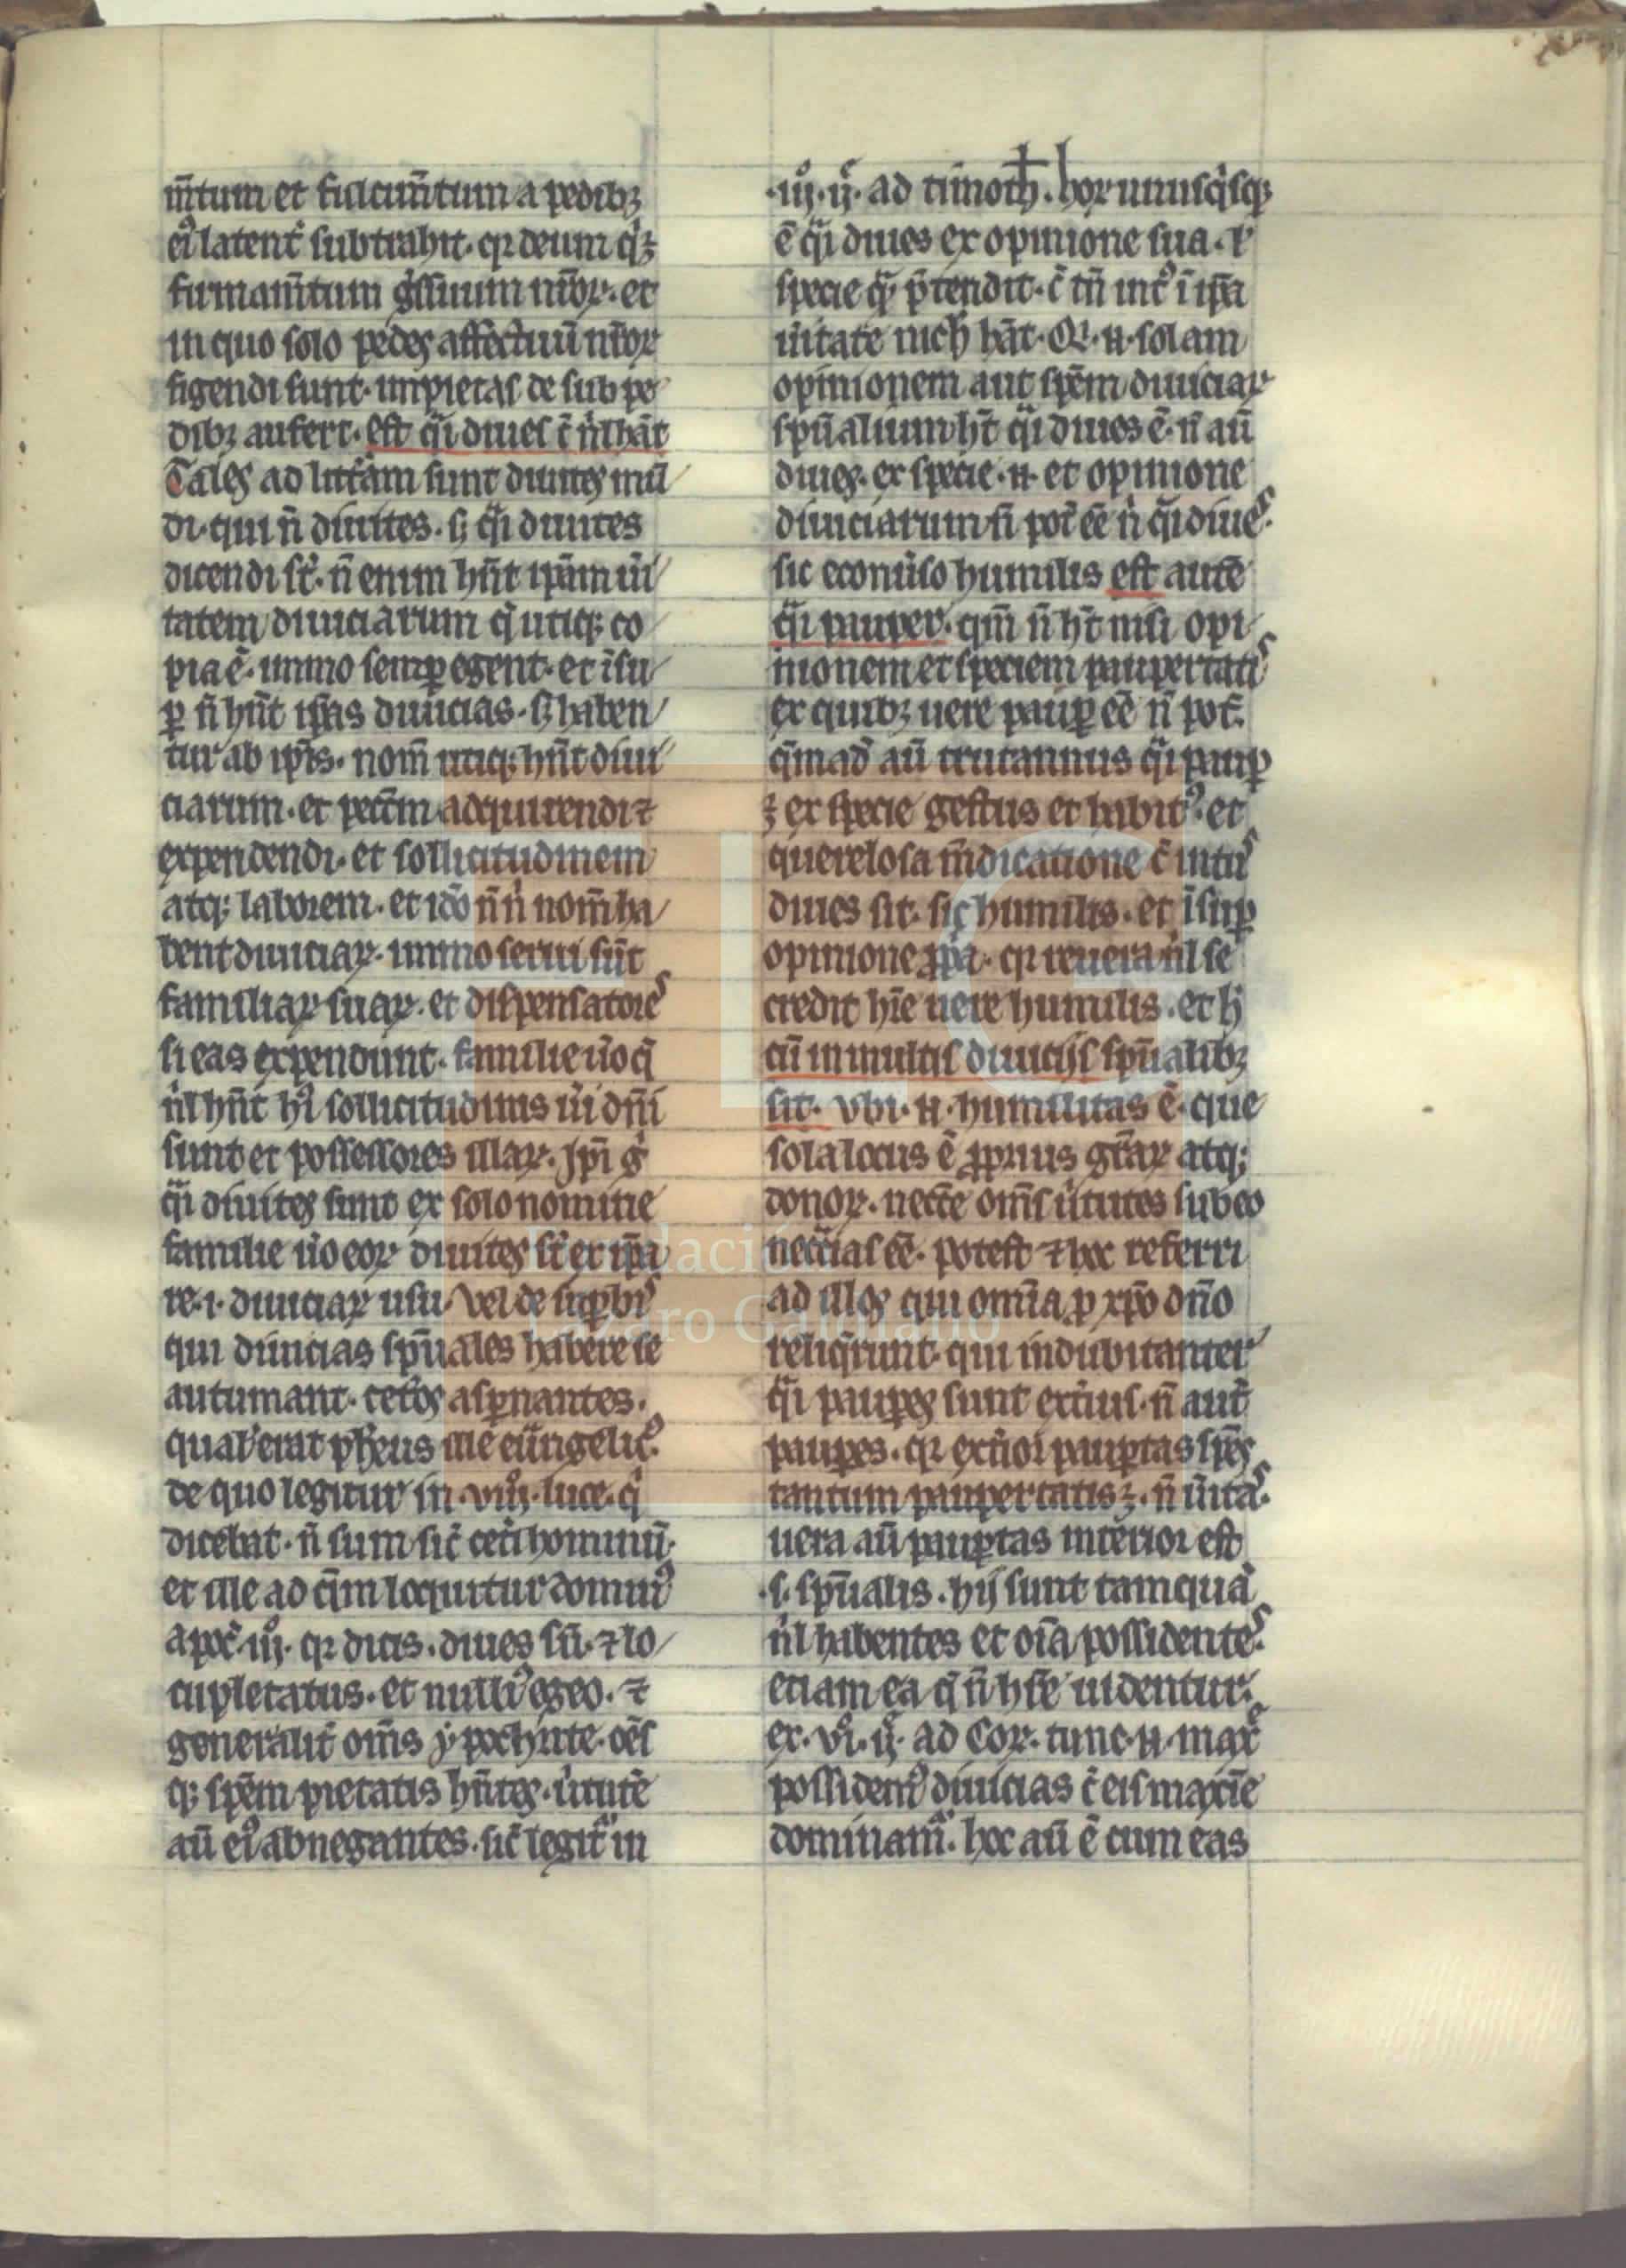 m̄tum et fulcim̄tum a pedibꝫ
eiꝰ latent̾ subtrahit. qꝛ deum q̇ ꝫ
firmam̄tum gͥssuum nr̄oꝝ. et
in quo solo pedes affectuū nr̄oꝝ
figendi sunt. impietas de sub pe
dibꝫ aufert. est qͣi diues c̄ nͥl hāt
Tales ad litt̾am sunt diuites mū
di. qui n̄ diuites. sꝫ qͣi diuites
dicendi st̄. n̄ enim hn̄t ipam ūi
tatem diuiciarum q̇ utiqꝫ co
pia ē. immo semꝑ egent. et ī su
ꝑ n̄ hn̄t ip̄as diuicias. sꝫ haben
tur ab ip̄is. nom̄ utiqꝫ hn̄t diui
ciarum. et pecc̄m adquirendi ⁊
expendendi. et sollicitudinem
atqꝫ laborem. et ido n̄ nͥ nom̄ ha
bent diuiciaꝝ. immo serui sūt
familiaꝝ suaꝝ. et dispensatores
si eas expendunt. familie ūo q̄
nͥl hn̄t hꝰi sollicitudinis ūi dn̄i
sunt et possessores illaꝝ. Jpi gͦ
qͣi diuites sunt ex solo nomine
familie ūo eoꝝ diuites st̄ ex ip̄a
re .i. diuiciaꝝ usu. Vel de suꝑbis
qui diuicias sp̄uales habere se
autumant. cet̾os asp̄nantes.
qual̾ erat ph̾eus ille eūngelicꝰ.
de quo legitur in .viijͦ. luce. qͥ
dicebat. n̄ sum sic̄ cet̾i hominū.
et ille ad qͣm loquitur dominꝰ
apoc̄. iijͦ. qꝛ dicis. diues sū. ⁊ lo
cupletatus. et nulliꝰ egeo. ⁊
generalit̾ om̄s ypochrite. oēs
qꝫ spēm pietatis hn̄tes. ūtutē
aū eiꝰ abnegantes. sic̄ legit̾ in
.iijͦ. ijͤ. ad timoth̄. hoꝝ unusqͥsqꝫ
ē qͣi diues ex opinione sua. ł
specie qͣ p̄tendit. c̄ tn̄ intꝰ ī ip̄a
ūitate nich̄ hāt. Qꝛ .n. solam
opinionem aut spēm diuiciaꝝ
sp̄ualium ht̄ qͣi diues ē. n̄ aū
diues. ex specie .n. et opinione
diuiciarum n̄ pot̄ eē nͥ qͣi diues.
sic econūso humilis est autē
qͣi pauper. qm̄ n̄ ht̄ nisi opi
nionem et speciem paupertatis
ex quibꝫ uere pauꝑ eē n̄ pot̄.
qͣmad̄ aū trutannus qͣi pauꝑ
ꝫ ex specie gestus et habitꝰ. et
querelosa m̄dicatione c̄ intus
diues sit. sic humilis. et ī suꝑ
opinione ꝓp̄a. qꝛ reuera nͥl se
credit hr̄e uere humilis. et hͦ
cū in multis diuicijs sp̄ualibꝫ
sit. Vbi .n. humilitas ē. que
sola locus ē ꝓprius gr̄aꝝ atqꝫ
donoꝝ. neccē om̄s ūtutes sub eo
necc̄ias eē. potest ⁊ hoc referri
ad illos qui omīa ꝓ xp̄o dn̄o
reliqr̄unt. qui indubitanter
qͣi pauꝑes sunt ext̾ius. n̄ aut̄
pauꝑes. qꝛ ext̾ior pauꝑtas spēs
tantum paupertatis ꝫ. n̄ ūitas.
uera aū pauꝑtas interior est
.s. sp̄ualis. hij sunt tamquā
nͥl habentes et oīa possidentes.
etiam ea q̄ n̄ hr̄e uidentur.
ex. vjͦ. ijͤ. ad Coꝝ. tunc .n. max̄e
possidentͬ diuicias c̄ eis maxīe
dominamͬ. hoc aū ē cum eas